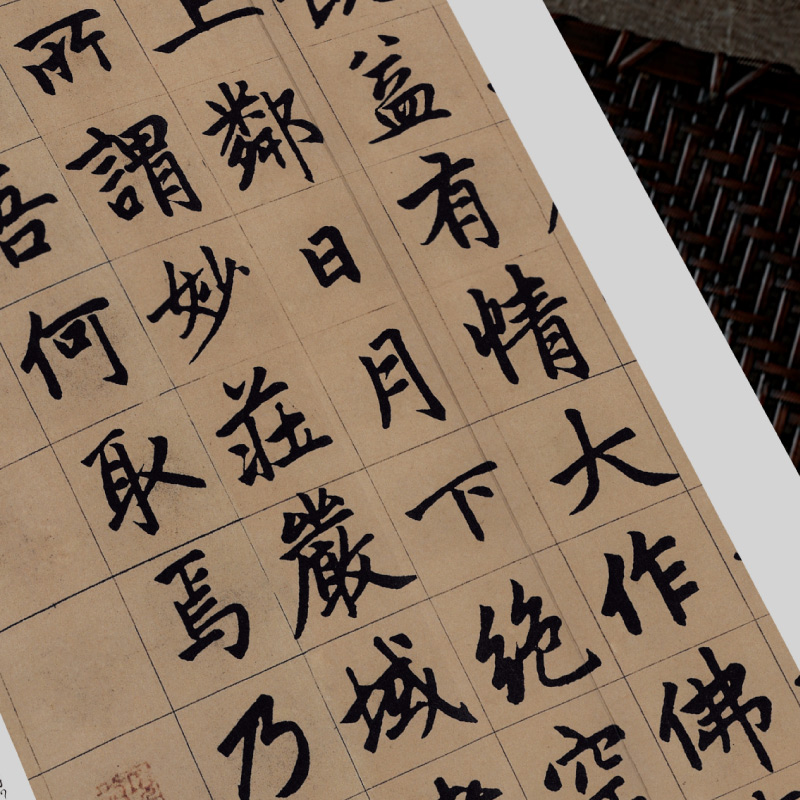 益有情大作佛
上鄰日月下絶空
所謂妙莊嚴域
吾何取焉乃